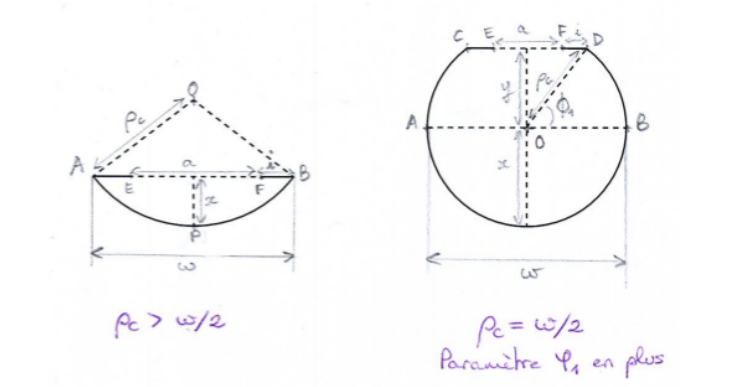 O
ρc
A
a
i
B
E
F
x
P
w
ρc > w/2
C
E
a
F
i
D
y
ρc
ϕ₁
A
B
O
x
w
ρc = w/2
Paramètre φ₁ en plus